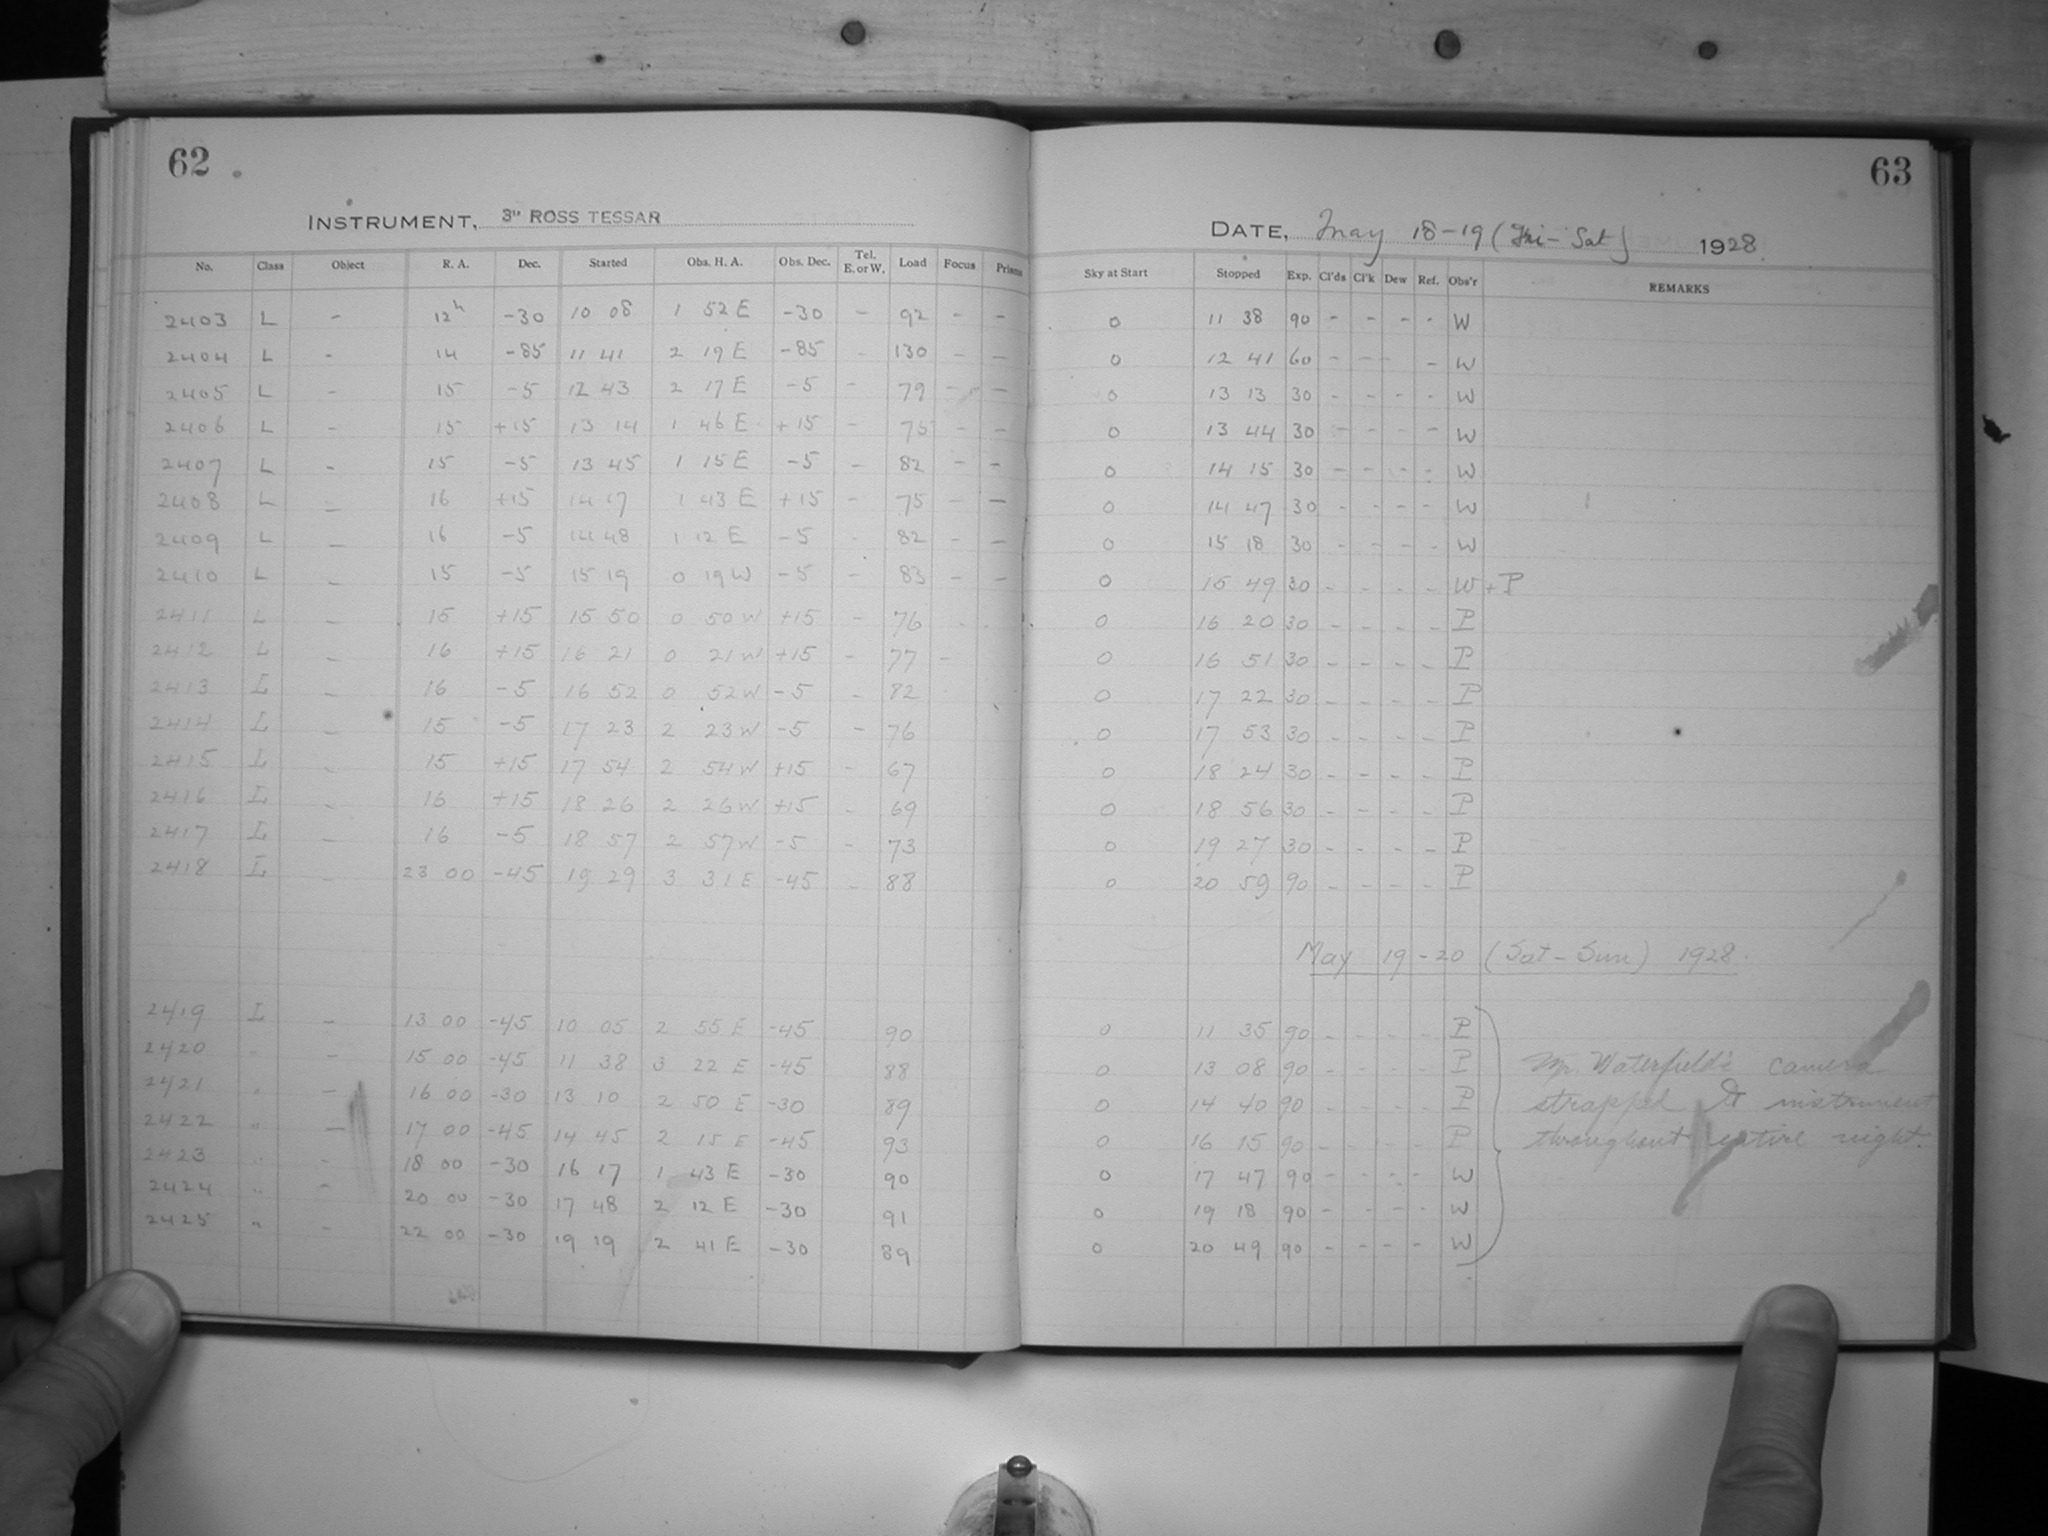 62
INSTRUMENT, 3" ROSS TESSAR
No. Class Object R. A. Dec. Started Obs. H. A. Obs. Dec. Tel. E. or W. Load Focus Prism
2403 L - 12h -30 10 08 1 52 E -30 - 92 - -
2404 L - 14 -85 11 41 2 19 E -85 - 130 - -
2405 L - 15 -5 12 43 2 17 E -5 - 79 - -
2406 L - 15 +15 13 14 1 46 E +15 - 75 - -
2407 L - 15 -5 13 45 1 15 E -5 - 82 - -
2408 L - 16 +15 14 17 1 43 E +15 - 75 - -
2409 L - 16 -5 14 48 1 12 E -5 - 82 - -
2410 L - 15 -5 15 19 0 19 W -5 - 83 - -
2411 L - 15 +15 15 50 0 50 W +15 - 76 - -
2412 L - 16 +15 16 21 0 21 W +15 - 77 -
2413 L - 16 -5 16 52 0 52 W -5 - 82
2414 L - 15 -5 17 23 2 23 W -5 - 76
2415 L - 15 +15 17 54 2 54 W +15 - 67
2416 L - 16 +15 18 26 2 26 W +15 - 69
2417 L - 16 -5 18 57 2 57 W -5 - 73
2418 L - 23 00 -45 19 29 3 31 E -45 - 88
2419 L - 13 00 -45 10 05 2 55 E -45 90
2420 " - 15 00 -45 11 38 3 22 E -45 88
2421 " - 16 00 -30 13 10 2 50 E -30 89
2422 " - 17 00 -45 14 45 2 15 E -45 93
2423 " - 18 00 -30 16 17 1 43 E -30 90
2424 " - 20 00 -30 17 48 2 12 E -30 91
2425 " - 22 00 -30 19 19 2 41 E -30 89
63
DATE, May 18-19 (Fri-Sat) 1928
Sky at Start Stopped Exp. Cl'ds Cl'k Dew Ref. Obs'r REMARKS
0 11 38 90 - - - - W
0 12 41 60 - - - - W
0 13 13 30 - - - - W
0 13 44 30 - - - - W
0 14 15 30 - - - - W
0 14 47 30 - - - - W
0 15 18 30 - - - - W
0 15 49 30 - - - - W + P
0 16 20 30 - - - - P
0 16 51 30 - - - - P
0 17 22 30 - - - - P
0 17 53 30 - - - - P
0 18 24 30 - - - - P
0 18 56 30 - - - - P
0 19 27 30 - - - - P
0 20 59 90 - - - - P
May 19-20 (Sat-Sun) 1928.
0 11 35 90 - - - - P
0 13 08 90 - - - - P Mr. Waterfield's camera
0 14 40 90 - - - - P strapped to instrument
0 16 15 90 - - - - P throughout entire night.
0 17 47 90 - - - - W
0 19 18 90 - - - - W
0 20 49 90 - - - - W